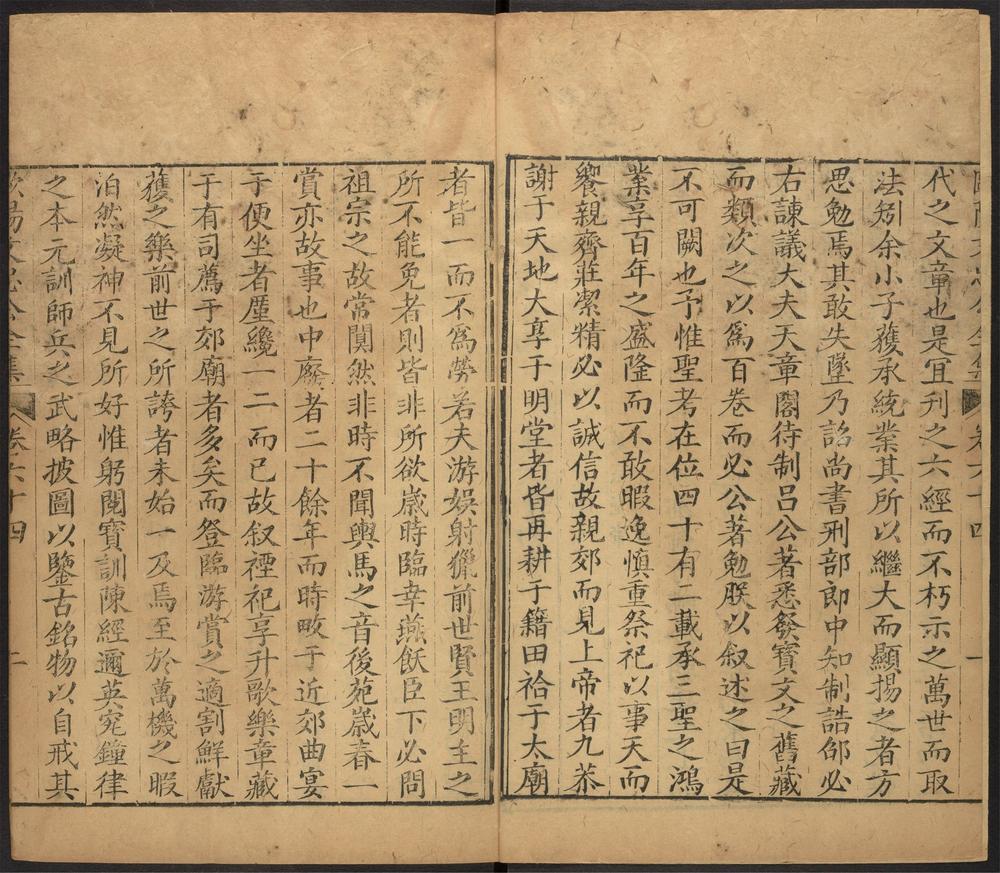 代之文章也是宜刋之六經而不朽示之萬世而取
法矧余小子獲承統業其所以繼大而顯揚之者方
思勉焉其敢失墜乃詔尚書刑部郎中知制誥邵必
右諫議大夫天章閣待制吕公著悉發寶文之舊藏
而類次之以爲百卷而必公著勉朕以叙述之曰是
不可闕也予惟聖考在位四十有二載承三聖之鴻
業享百年之盛隆而不敢暇逸慎重祭祀以事天而
饗親齊莊潔精必以誠信故親郊而見上帝者九恭
謝于天地大享于明堂者皆再耕于籍田祫于太廟
者皆一而不爲勞若夫游娛射獵前世賢王明主之
所不能免者則皆非所欲歲時臨幸燕飫臣下必問
祖宗之故常闃然非時不聞輿馬之音後苑歲春一
賞亦故事也中廢者二十餘年而時畋于近郊曲宴
于便坐者厪纔一二而已故叙禋祀享升歌樂章藏
于有司薦于郊廟者多矣而登臨游賞之適割鮮獻
獲之樂前世之所誇者未始一及焉至於萬機之暇
泊然凝神不見所好惟躬閱寶訓陳經邇英究鐘律
之本元訓師兵之武略披圖以鑒古銘物以自戒其
卷六十四 二